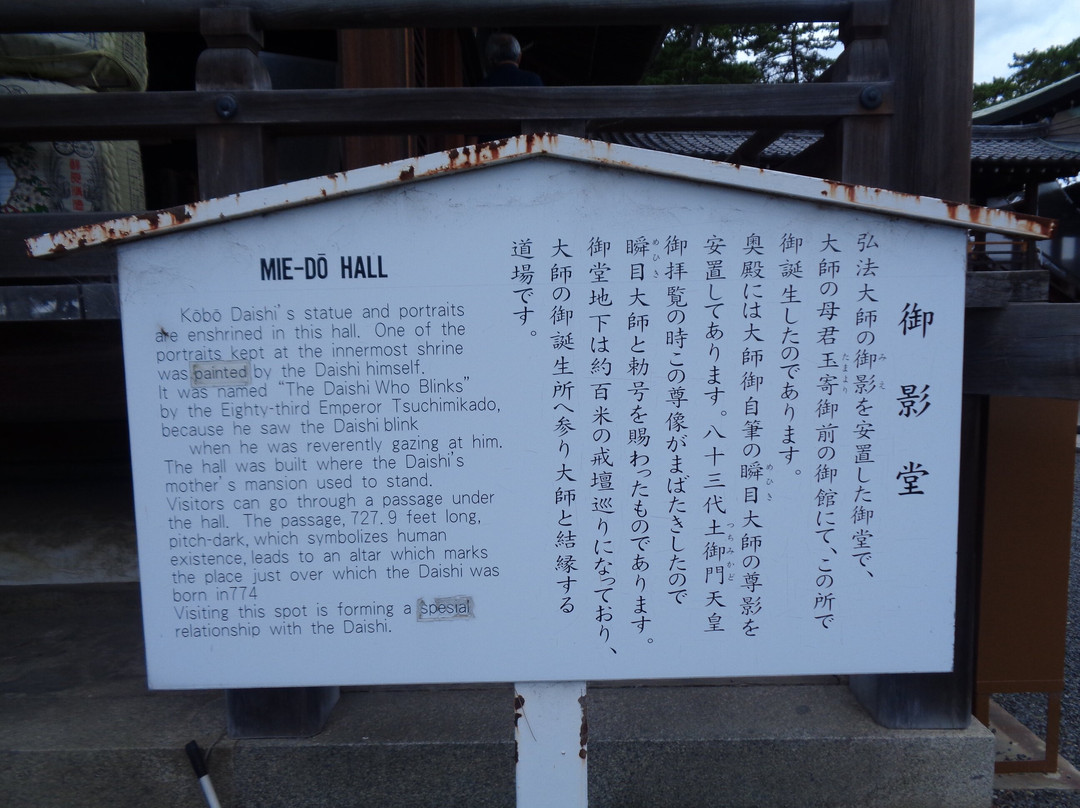 MIE-DŌ HALL
Kōbō Daishi's statue and portraits
are enshrined in this hall. One of the
portraits kept at the innermost shrine
was painted by the Daishi himself.
It was named “The Daishi Who Blinks”
by the Eighty-third Emperor Tsuchimikado,
because he saw the Daishi blink
when he was reverently gazing at him.
The hall was built where the Daishi's
mother's mansion used to stand.
Visitors can go through a passage under
the hall. The passage, 727.9 feet long,
pitch-dark, which symbolizes human
existence, leads to an altar which marks
the place just over which the Daishi was
born in774
Visiting this spot is forming a spesial
relationship with the Daishi.
御影堂
弘法大師の御影を安置した御堂で、
みえ
大師の母君玉寄御前の御館にて、この所で
たまより
御誕生したのであります。
奥殿には大師御自筆の瞬目大師の尊影を
めひき
安置してあります。八十三代土御門天皇
つちみかど
御拝覧の時この尊像がまばたきしたので
瞬目大師と勅号を賜わったものであります。
めひき
御堂地下は約百米の戒壇巡りになっており、
大師の御誕生所へ参り大師と結縁する
道場です。